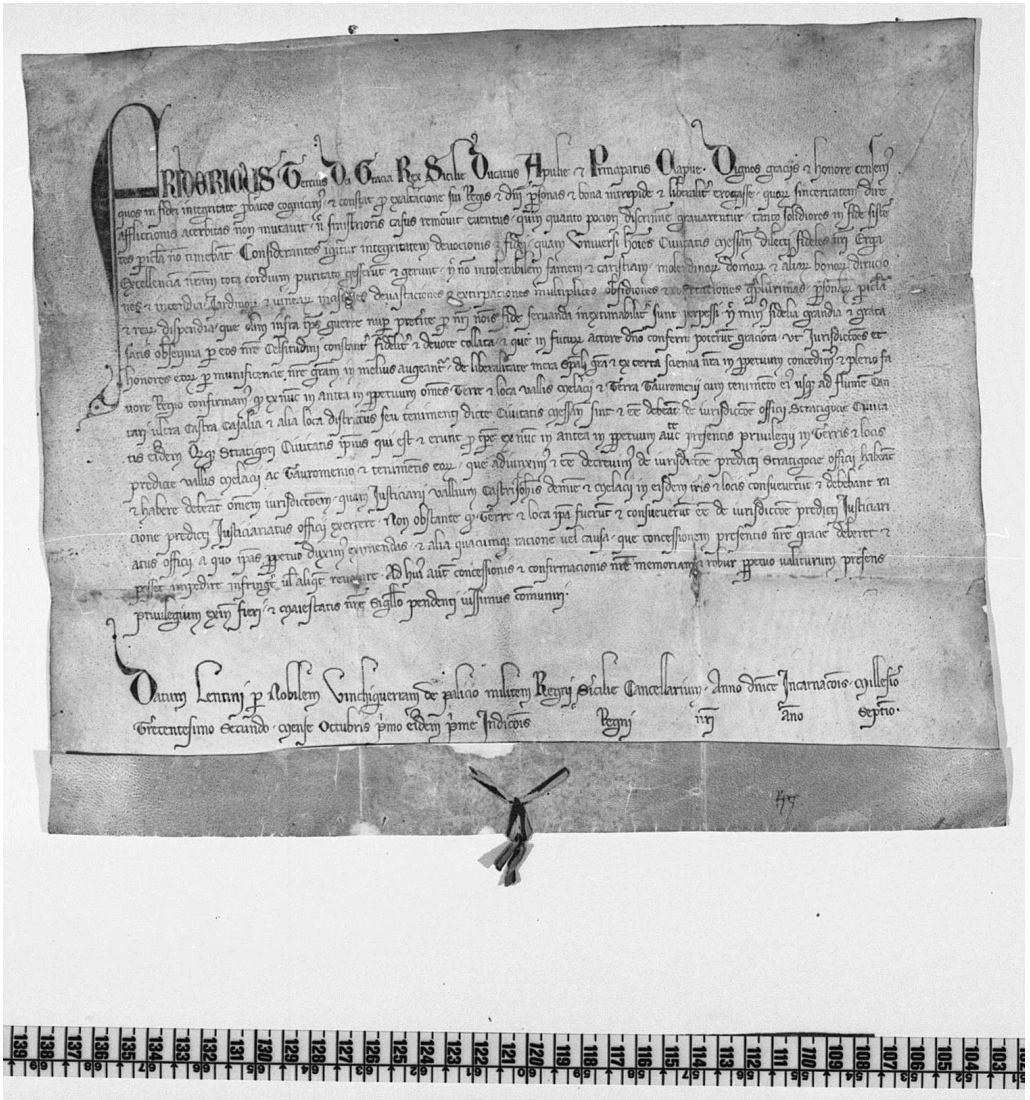 FRIDERICUS Tercius Dei Gracia Rex Sicilie Ducatus Apulie & Principatus Capue. Dignos gracijs & honore censem9
quos in fidei integritate cognoscim9 & constat p exaltatione sui Regis & dnj psonas & bona intrepide & liberalit erogasse. quor sinceritatem dire
afflictionis acerbitas non mutauit. n sinistrioris casus remouit euentus. quin quanto pocion discrimine grauarentur. tanto solidiores in fide
tes picla no timebat. Considerantes igitur integritatem deuocionis & fidej. quam Vniuersi hoies Ciuitatis Messan dilecti fideles nri Erga
Excellencia nram tota cordium puritate gesserut & gerunt. no intolerabilem famem & caristiam. molendinor domor & alior bonor diruicio
nes & incendia. Jardinor & vinear deuastaciones & extirpaciones multiplices obsidiones & psonar picla
& rerum dispendia. que olim infra tps guerre nup pterite p nri nois fide seruanda inextimabilit sunt ppessi. fidelia grandia & grata
satis obsequia p eos nre Celsitudini constant fidelit & deuote collata. & que in futur actore dno conferri poterut graciora. vt Jurisdictoes et
honores eor p munificencia nre gram in melius augeant. de liberalitate mera spali gra & ex certa sciencia nra in ppetuum concedim9 & pleno fa
uore Regio confirmam9 q exnuc in antea in ppetuum omes Terre & loca vallis Melacij & Terra Tauromenij cum tenimeto ej9 usq ad flumen Can
tari ultra Castra Casalia & alia loca districtus seu tenimenti dicte Ciuitatis Messan sint & ee debeat de iurisdictoe officij Stratigocie Ciuita
tis eidem. Stratigoti Ciuitatis ipsius qui est & erunt p tpe ex nuc in antea in ppetuum auctte presentis priuilegij in Terris & locis
predicte vallis Melacij ac Tauromenio & tenimetis eor. que adiunxim9 & ee decreuim9 de iurisdictoe predicti stratigocie officij habeat
& habere debeat omem iurisdictoem. quam Justiciarij vallium Castri Johis demine & Melacij in eisdem tris & locis consueuerut & debebant ra
cione predicti Justiciariatus officij exercere. Non obstante q Terre & loca ipa fuerut & consueuerut ee de iurisdictoe predicti Justiciari
atus officij. a quo ipas ppetuo duxim9 eximendas. & alia quacumq racione uel causa. que concessionem presentis nre gracie deberet &
posset impedire infringe ul aliqt reuocare. Ad hui9 aut concessionis & confirmacionis nre memoriam & robur ppetuo ualiturum presens
priuilegium exin fieri. & Maiestatis nre Sigillo pendenti iussimus communiri.
Datum Lentini p Nobilem Vinchiguerram de palicio militem Regni Sicilie Cancellarium. Anno dnice Incarnacois. Millesio
Trecentesimo Secundo. Mense Octubris pmo eiusdem pme Indicois Regni nri ano septio.
139 138 137 136 135 134 133 132 131 130 129 128 127 126 125 124 123 122 121 120 119 118 117 116 115 114 113 112 111 110 109 108 107 106 105 104 103